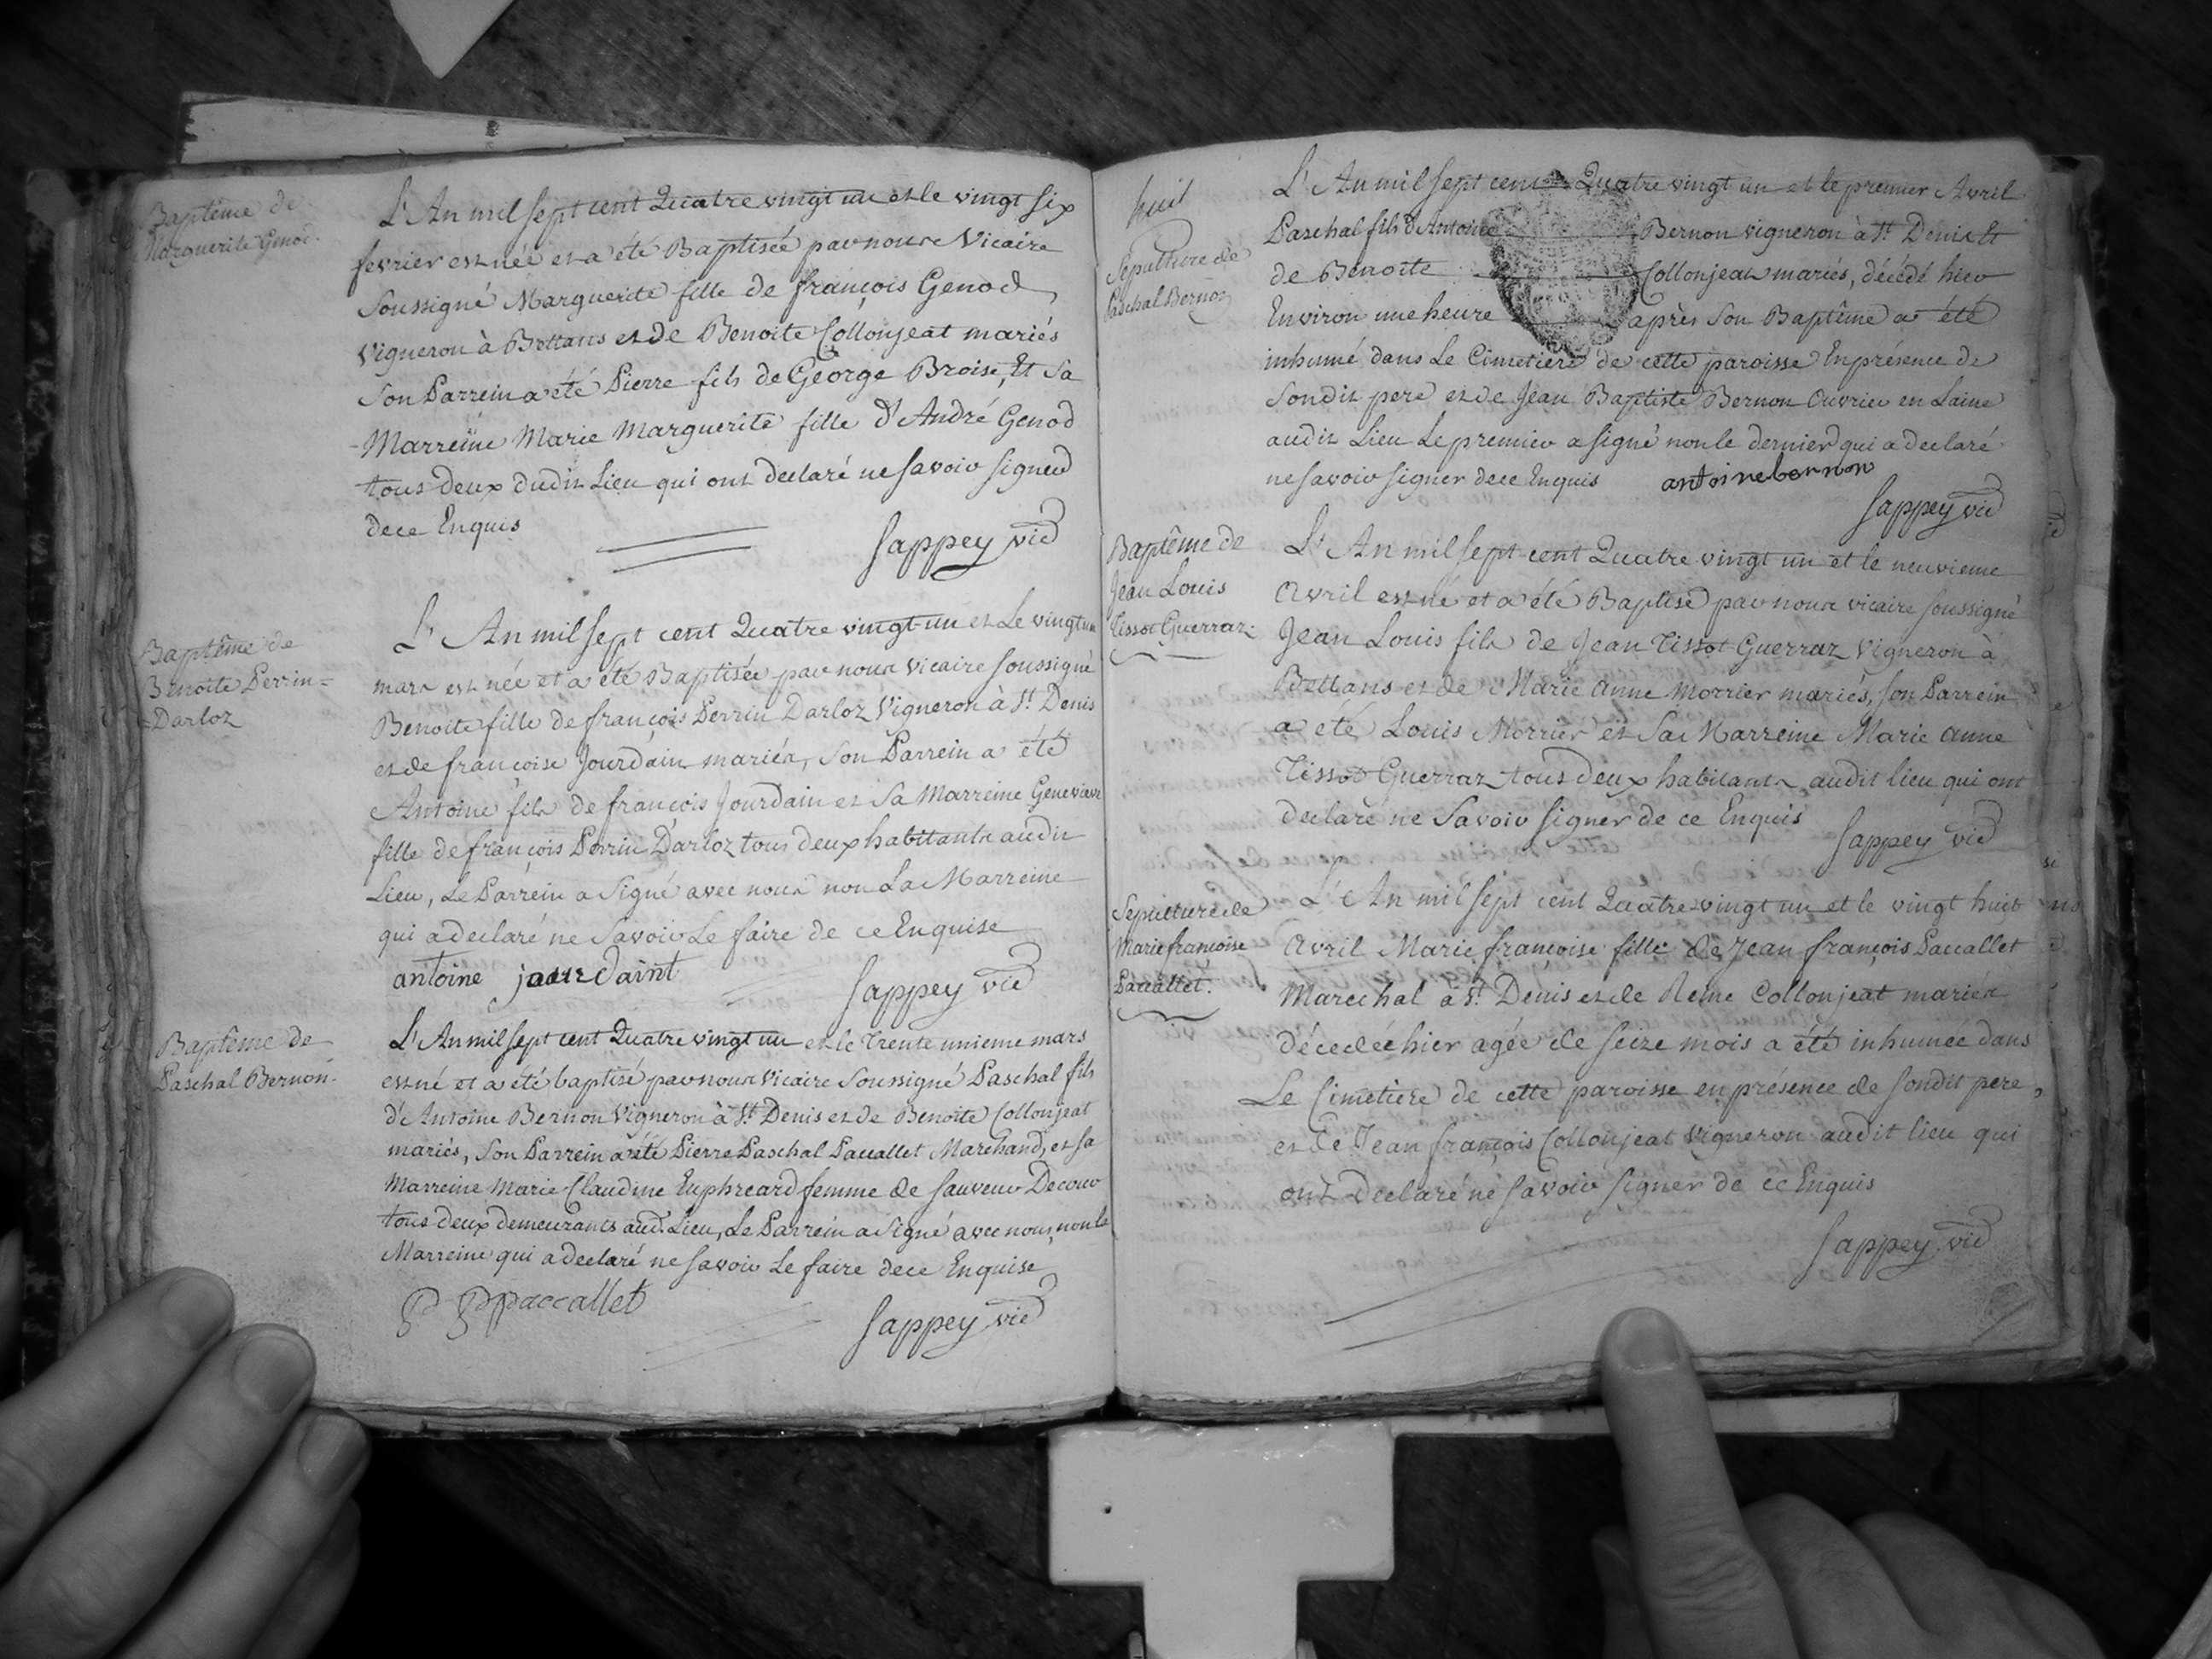 Baptême de
Marguerite Genod.
L'An mil sept cent Quatre vingt un et le vingt six
fevrier est née et a été Baptisée par nous Vicaire
Soussigné Marguerite fille de françois Genod
Vigneron à Bettans et de Benoite Collonjeat mariés
Son Parrein a été Pierre fils de George Broise, Et Sa
Marreine Marie Marguerite fille d'André Genod
tous deux dudit Lieu qui ont declaré ne savoir signer
de ce Enquis
Sappey vic
Baptême de
Benoite Perrin=
=Darloz
L'An mil sept cent Quatre vingt un et Le vingt un
mars est née et a été Baptisée par nous vicaire soussigné
Benoite fille de françois Perrin Darloz Vigneron à St Denis
et de françoise Jourdain mariés, Son Parrein a été
Antoine fils de françois Jourdain et Sa Marreine Genevieve
fille de françois Perrin Darloz tous deux habitants audit
Lieu, Le Parrein a Signé avec nous non La Marreine
qui a declaré ne Savoir Le faire de ce Enquise
antoine jourdaint
Sappey vic
Baptême de
Paschal Bernon.
L'An mil sept cent Quatre vingt un et le trente unieme mars
est né et a été baptisé par nous vicaire Soussigné Paschal fils
d'Antoine Bernon Vigneron à St Denis et de Benoite Collonjeat
mariés, Son Parrein a été Pierre Paschal Paccallet Marchand, et sa
Marreine Marie Claudine femme de Sauveur
tous deux demeurants aud. Lieu, Le Parrein a Signé avec nous, non la
Marreine qui a declaré ne savoir Le faire de ce Enquise
P Paccallet
Sappey vic
huit
Sepulture de
Paschal Bernon
L'An mil sept cent Quatre vingt un et le premier Avril
Paschal fils d'Antoine Bernon vigneron à St Denis Et
de Benoite Collonjeat mariés, décédé hier
Environ une heure après Son Baptême a été
inhumé dans Le Cimetiere de cette paroisse En présence de
Sondit pere et de Jean Baptiste Bernon Ouvrier en Laine
audit Lieu Le premier a signé non le dernier qui a declaré
ne savoir signer de ce Enquis antoine bernon
Sappey vic
Baptême de
Jean Louis
Tissot Guerraz.
L'An mil sept cent Quatre vingt un et le neuvieme
Avril est né et a été Baptisé par nous vicaire soussigné
Jean Louis fils de Jean Tissot Guerraz Vigneron à
Bettans et de Marie Anne Morrier mariés, son Parrein
a été Louis Morrier et Sa Marreine Marie Anne
Tissot Guerraz tous deux habitants audit lieu qui ont
declaré ne Savoir signer de ce Enquis
Sappey vic
Sepulture de
Marie françoise
Paccallet.
L'An mil sept cent Quatre vingt un et le vingt huit
Avril Marie françoise fille de Jean françois Paccallet
Marechal à St Denis et de Reine Collonjeat mariés
décedée hier agée de seize mois a été inhumée dans
Le Cimetière de cette paroisse en présence de sondit pere,
et de Jean françois Collonjeat Vigneron audit lieu qui
ont Declaré ne savoir signer de ce Enquis
Sappey vic